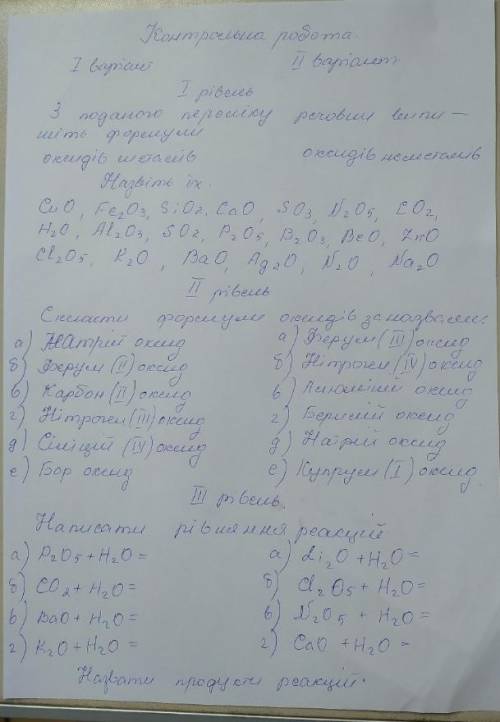 Контрольна робота.
I варіант II варіант
I рівень
З поданого переліку речовин випи-
шіть формули
оксидів металів оксидів неметалів
Назвіть їх.
CuO, Fe2O3, SiO2, CaO, SO3, N2O5, CO2,
H2O, Al2O3, SO2, P2O5, B2O3, BeO, ZnO
Cl2O5, K2O, BaO, Ag2O, N2O, Na2O
II рівень
Скласти формули оксидів за назвами:
а) Натрій оксид а) Ферум (III) оксид
б) Ферум (II) оксид б) Нітроген (IV) оксид
в) Карбон (II) оксид в) Алюміній оксид
г) Нітроген (III) оксид г) Берилій оксид
д) Сіліцій (IV) оксид д) Натрій оксид
е) Бор оксид е) Купрум (I) оксид
III рівень.
Написати рівняння реакцій
а) P2O5 + H2O = а) Li2O + H2O =
б) CO2 + H2O = б) Cl2O5 + H2O =
в) BaO + H2O = в) N2O5 + H2O =
г) K2O + H2O = г) CaO + H2O =
Назвати продукти реакцій.